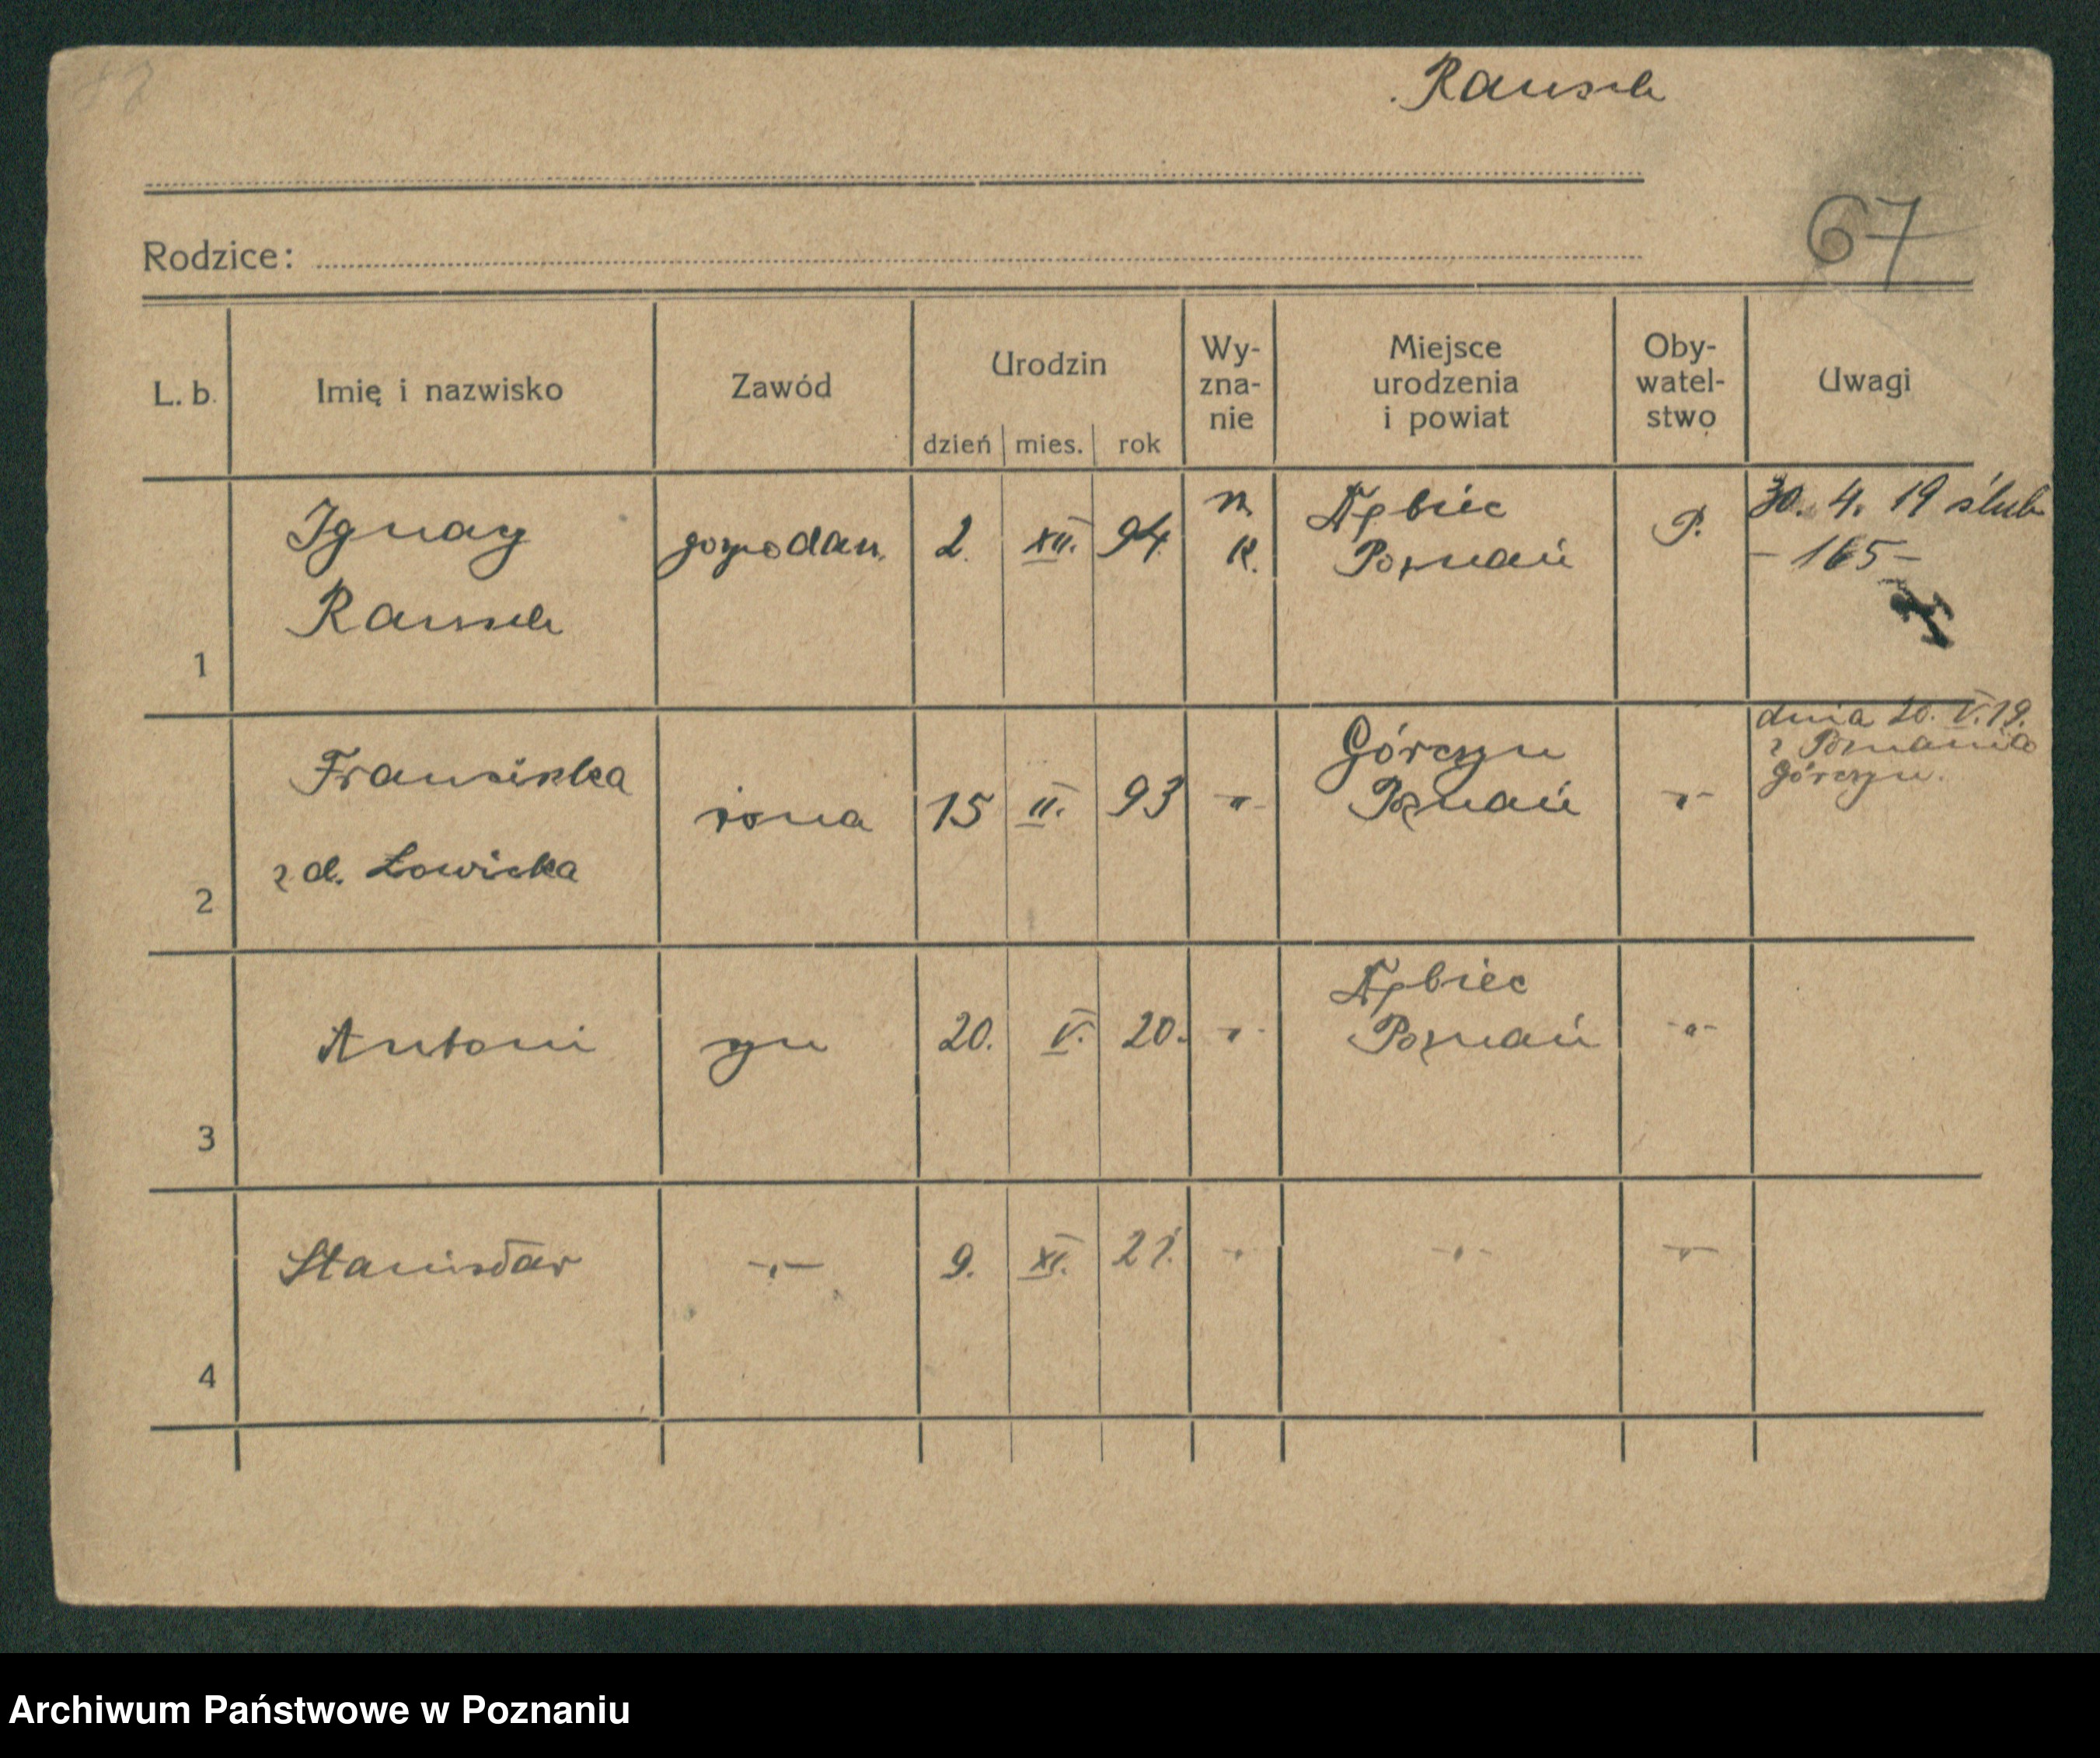 Rausch
67
Rodzice:
L. b. Imię i nazwisko Zawód Urodzin dzień mies. rok Wy-zna-nie Miejsce urodzenia i powiat Oby-watel-stwo Uwagi
1 Ignacy gospodarz. 2. XII. 94. r. Dębiec P. 30. 4. 19 ślub
Rausch k. Poznań - 165 -
2 Franciszka żona 15 II. 93 -"- Górczyn -"- dnia 20. V. 19.
z d. Łowicka Poznań z Poznania
Górczyn.
3 Antoni syn 20. V. 20. -"- Dębiec -"-
Poznań
4 Stanisław -"- 9. XI. 21. -"- -"- -"-
Archiwum Państwowe w Poznaniu